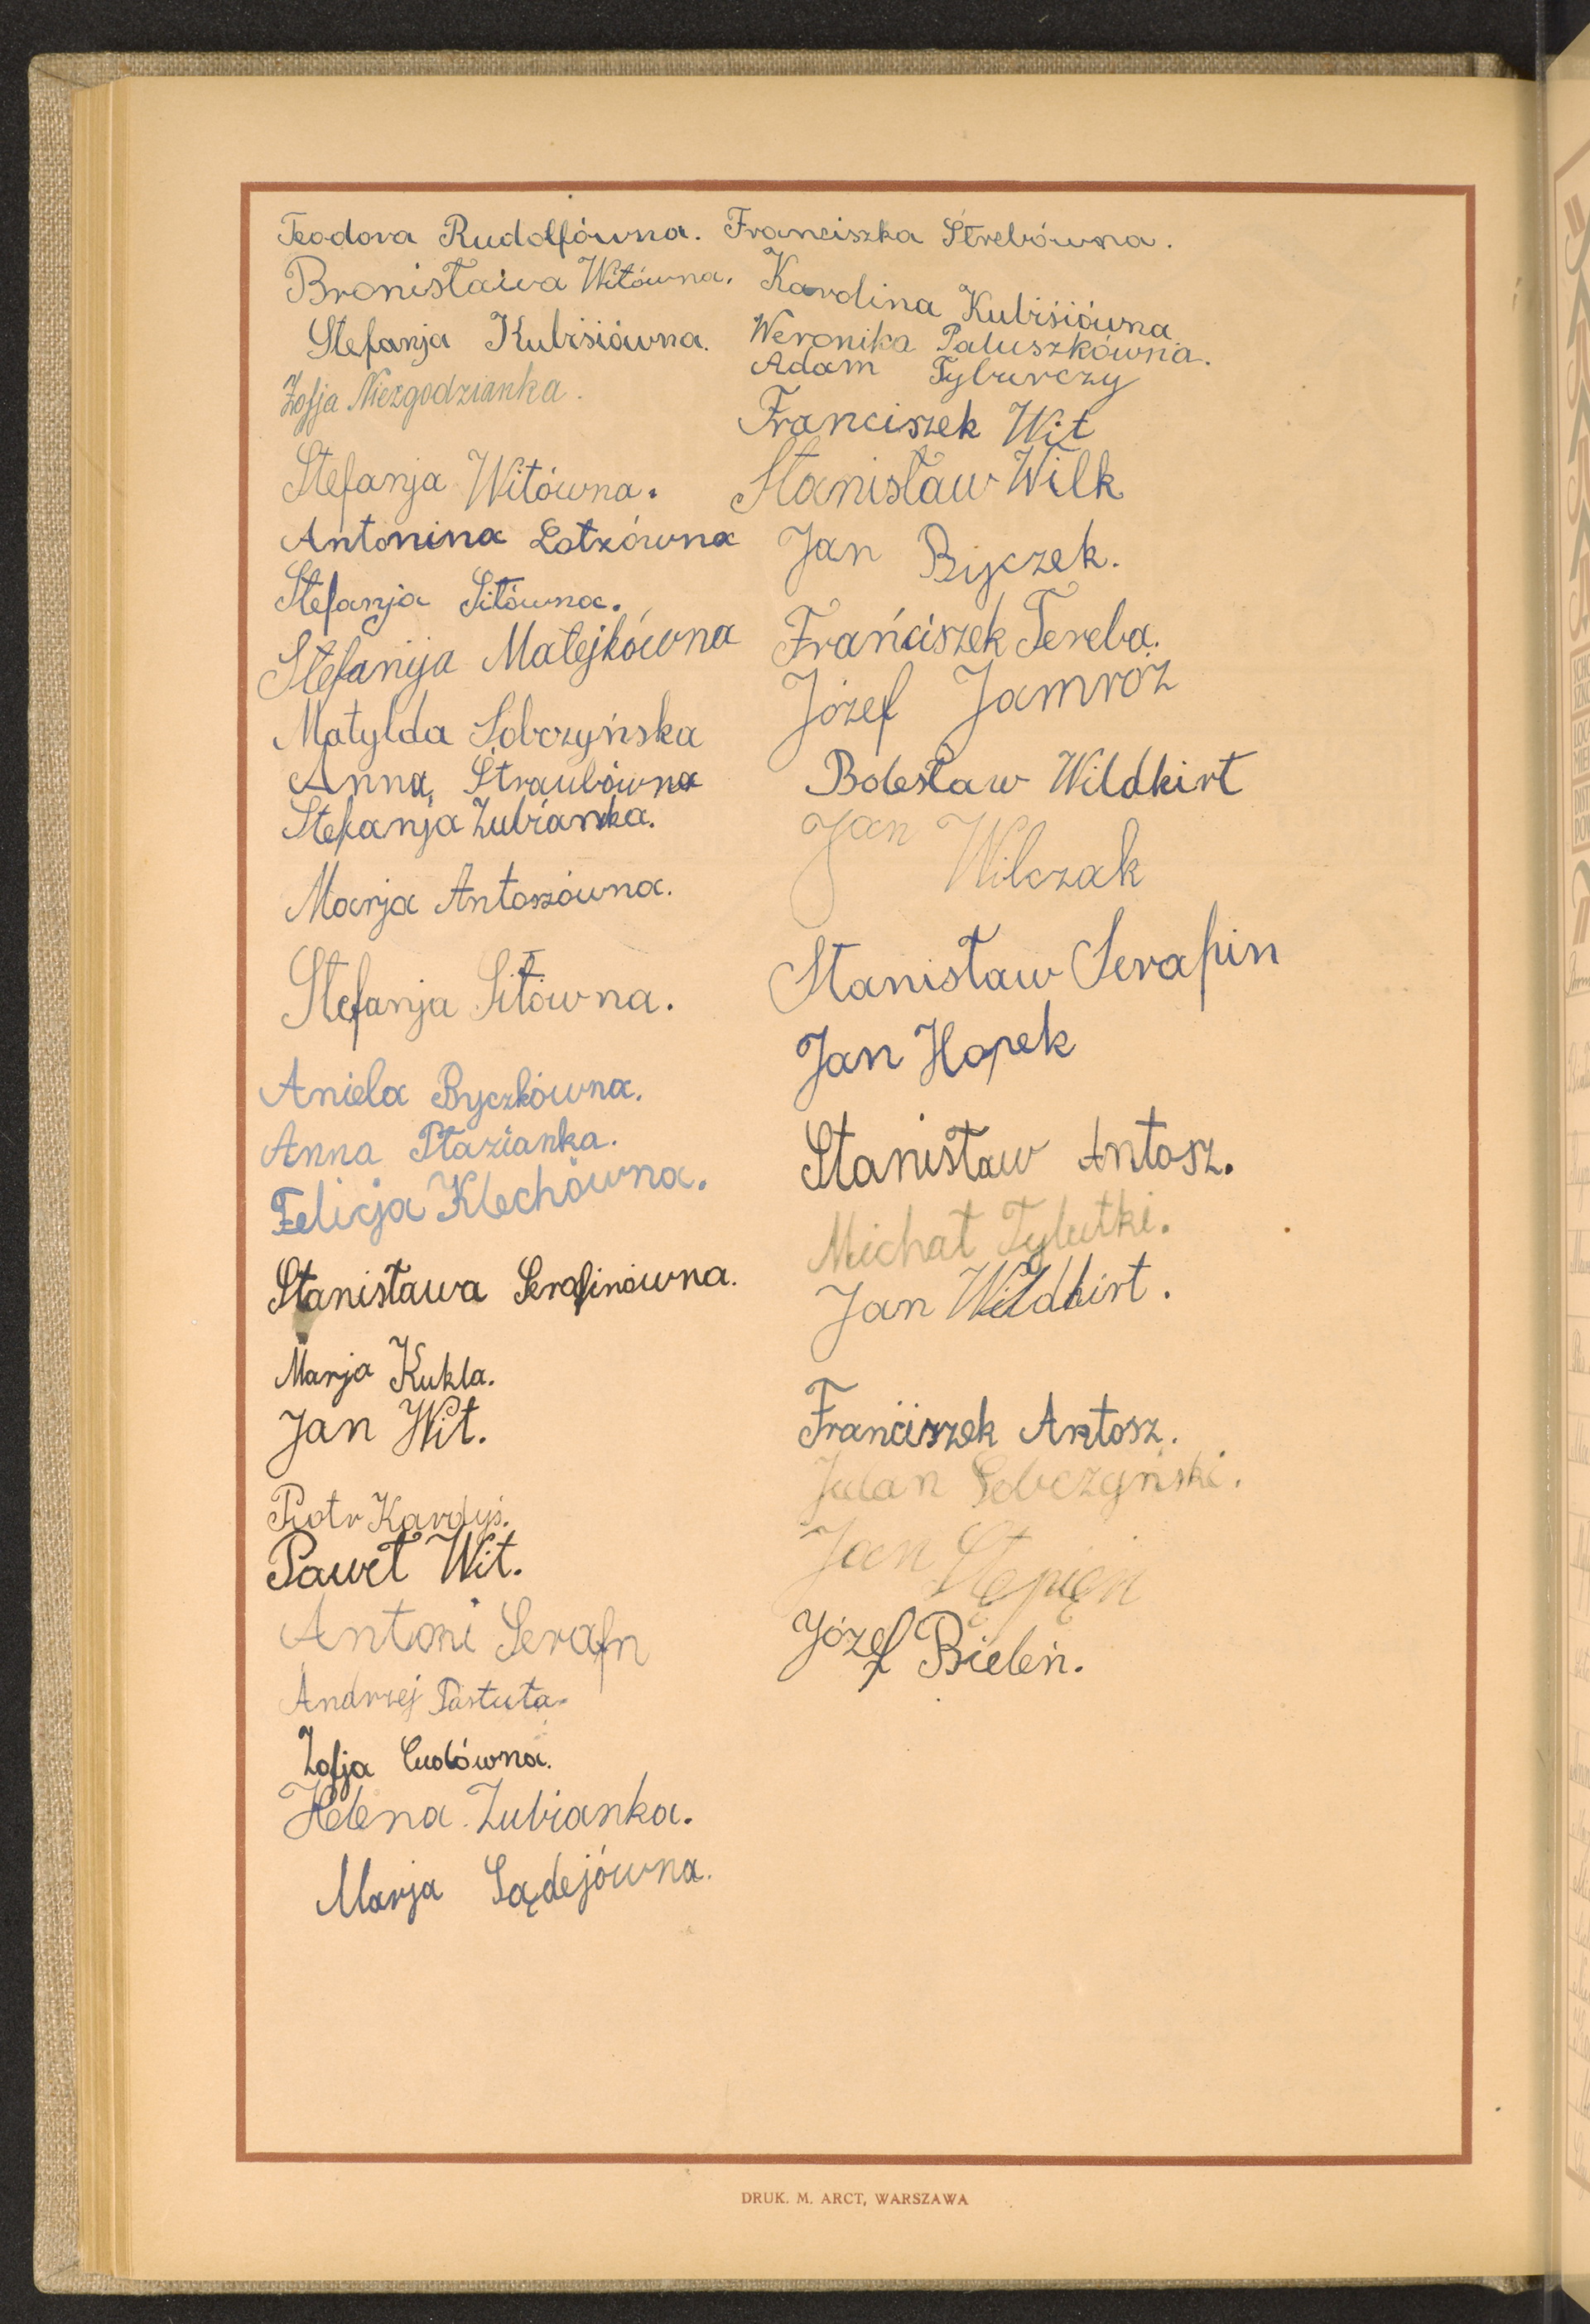 Teodora Rudolfówna.
Bronisława Witówna.
Stefanja Kubisiówna.
Zofja Niezgodzianka.
Stefanja Witówna.
Antonina Lotzówna
Stefanja Sitówna.
Stefanija Matejkówna
Matylda Sobczyńska
Anna Straubówna
Stefanja Zubianka.
Marja Antoszówna.
Stefanja Sitówna.
Aniela Byczkówna.
Anna Ptazianka.
Felicja Klechówna.
Stanisława Serafinówna.
Marja Kukla.
Jan Wit.
Piotr Kardyś.
Paweł Wit.
Antoni Serafn
Andrzej Pastuła.
Zofja Cudówna.
Helena Zubianka.
Marja Sądejówna.
Franciszka Strebówna.
Karolina Kubisiówna
Weronika Paluszkówna.
Adam Tyburczy
Franciszek Wit
Stanisław Wilk
Jan Byczek.
Frańciszek Tereba.
Józef Jamróz
Bolesław Wildkirt
Jan Wilczak
Stanisław Serafin
Jan Hopek
Stanisław Antosz.
Michał Tylutki.
Jan Wildkirt.
Frańciszek Antosz.
Julan Sobczyński.
Jan Stępień
Józef Bieleń.
DRUK. M. ARCT, WARSZAWA